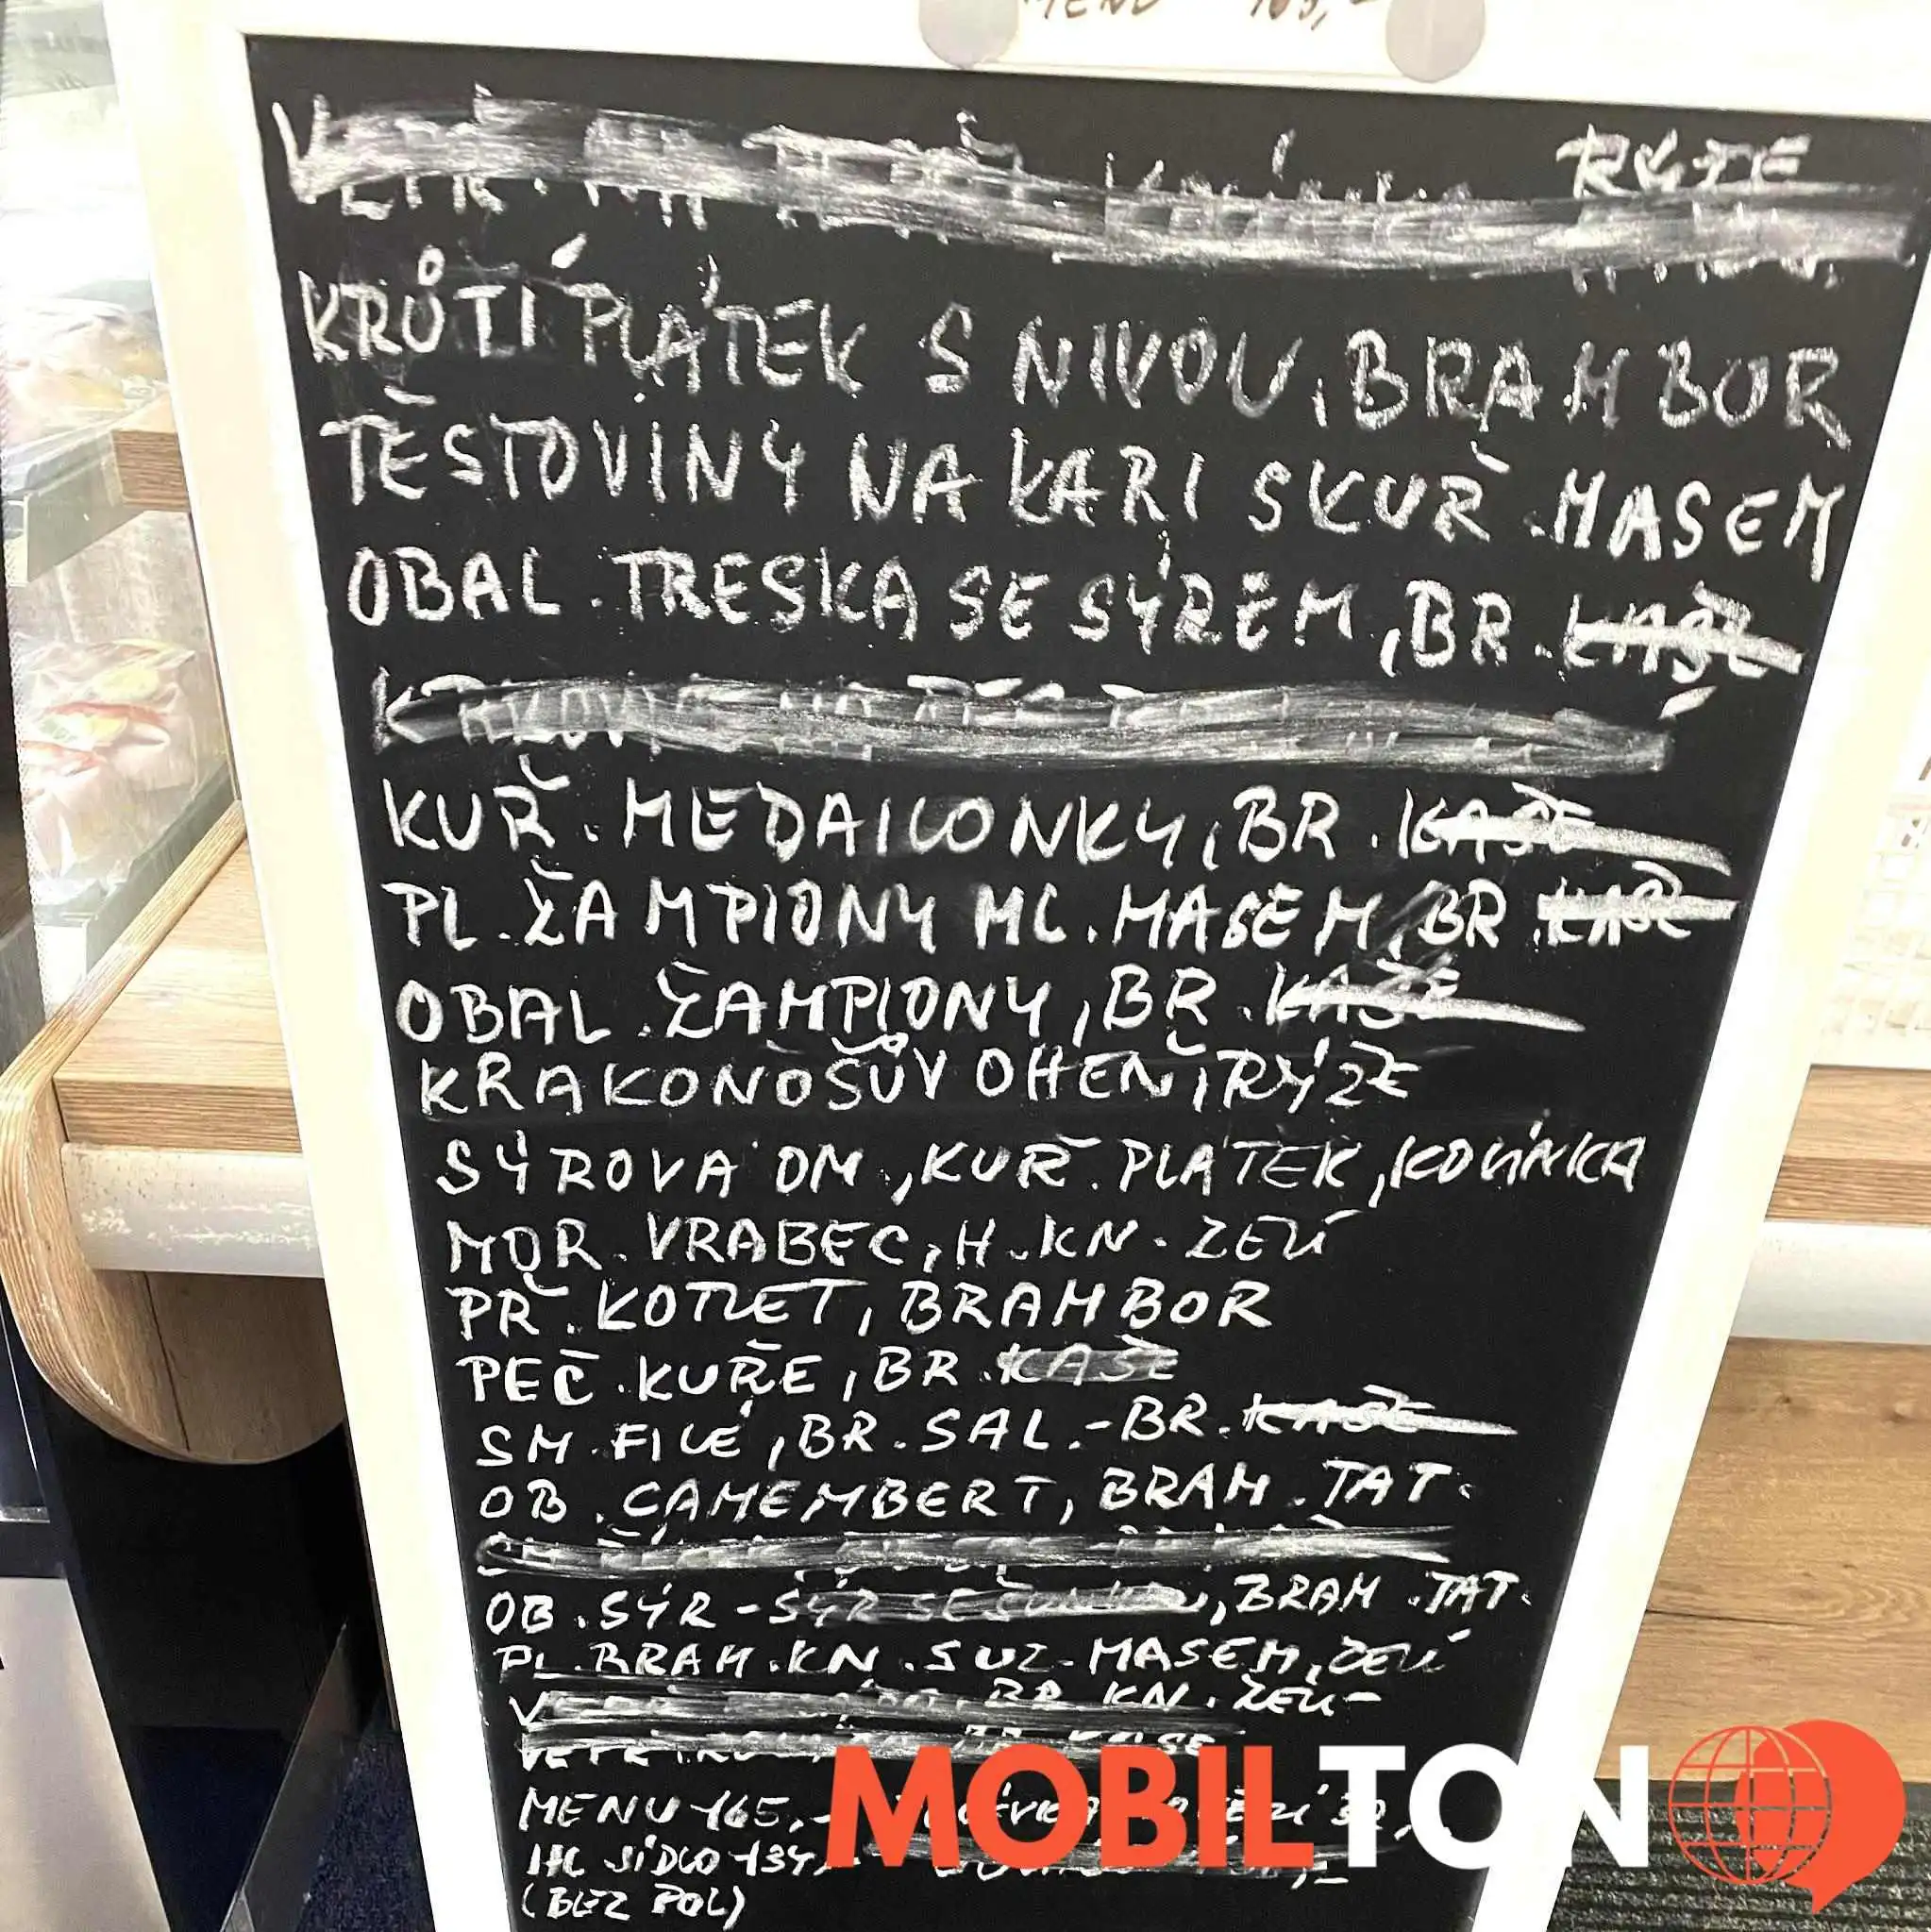 MENU 165,-
RÝŽE
KRŮTÍ PLÁTEK S NIVOU, BRAMBOR
TĚSTOVINY NA KARI S KUŘ. MASEM
OBAL. TRESKA SE SÝREM, BR. KAŠE
KUŘ. MEDAILONKY, BR. KAŠE
PL. ŽAMPIONY ML. MASEM, BR. KAŠE
OBAL. ŽAMPIONY, BR. KAŠE
KRAKONOŠŮV OHEŇ, RÝŽE
SÝROVÁ OM, KUŘ. PLÁTEK, KOLÍNKA
MOR. VRABEC, H. KN. ZELÍ
PŘ. KOTLET, BRAMBOR
PEČ. KUŘE, BR. KAŠE
SM. FILÉ, BR. SAL. - BR. KAŠE
OB. CAMEMBERT, BRAM. TAT.
OB. SÝR - SÝR SE ŠUNKOU, BRAM. TAT.
PL. BRAM. KN. S UZ. MASEM, ZELÍ
BR. KN. ZELÍ
MENU 165,-
HL JÍDLO 134,-
(BEZ POL)
MOBILTON